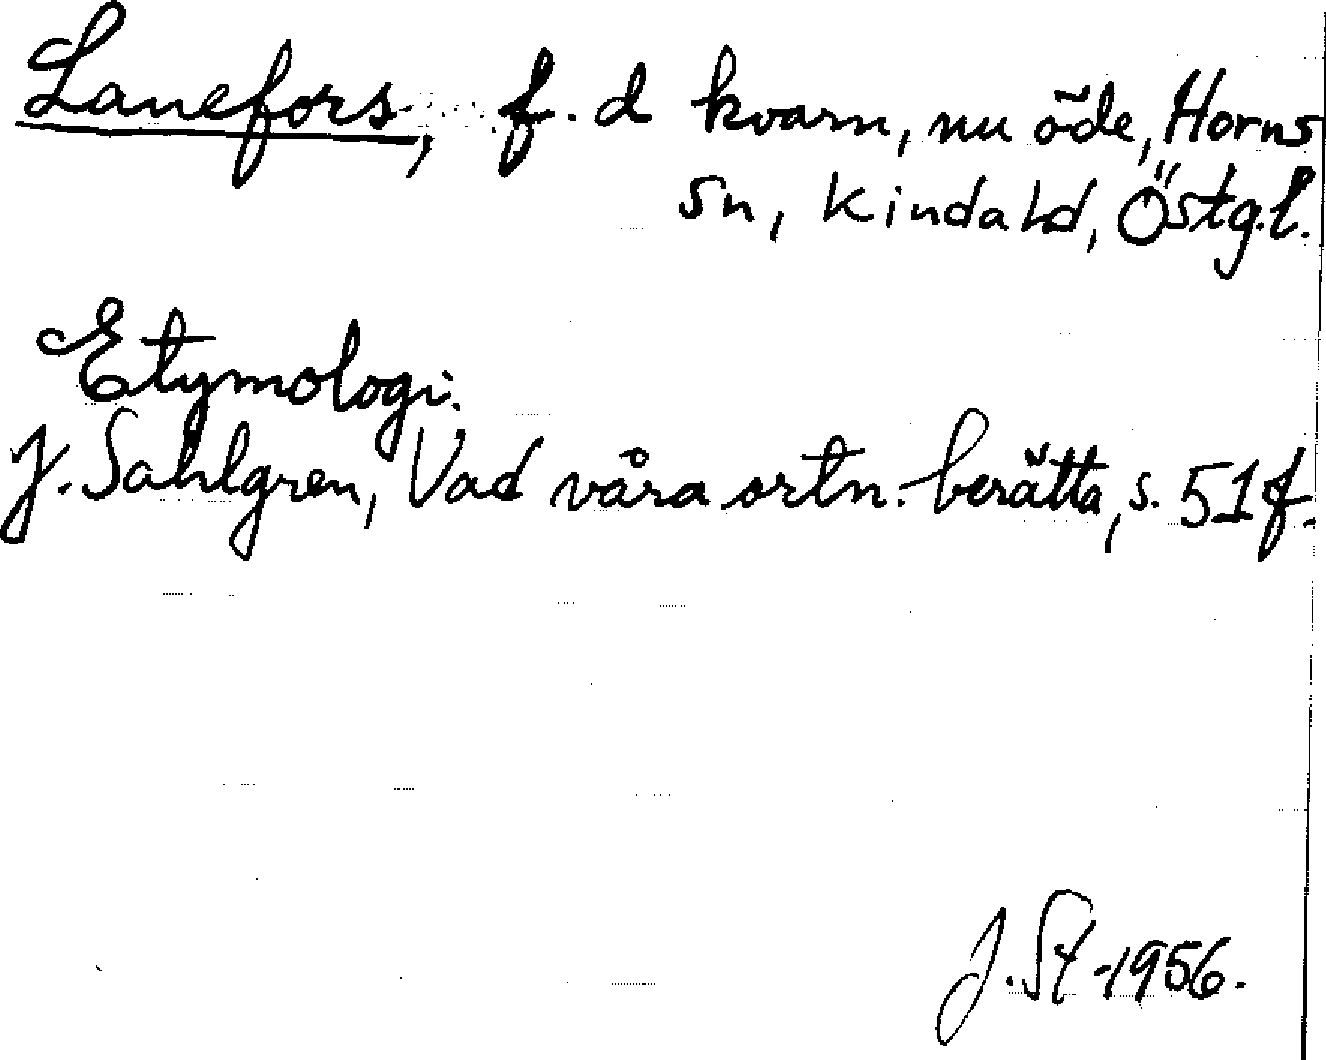 Lanefors, f. d kvarn, nu öde, Horns
sn, Kinda hd, Östg.l.
Etymologi.
J. Sahlgren, Vad våra ortn. berätta, s. 51 f.
J. St. 1956.